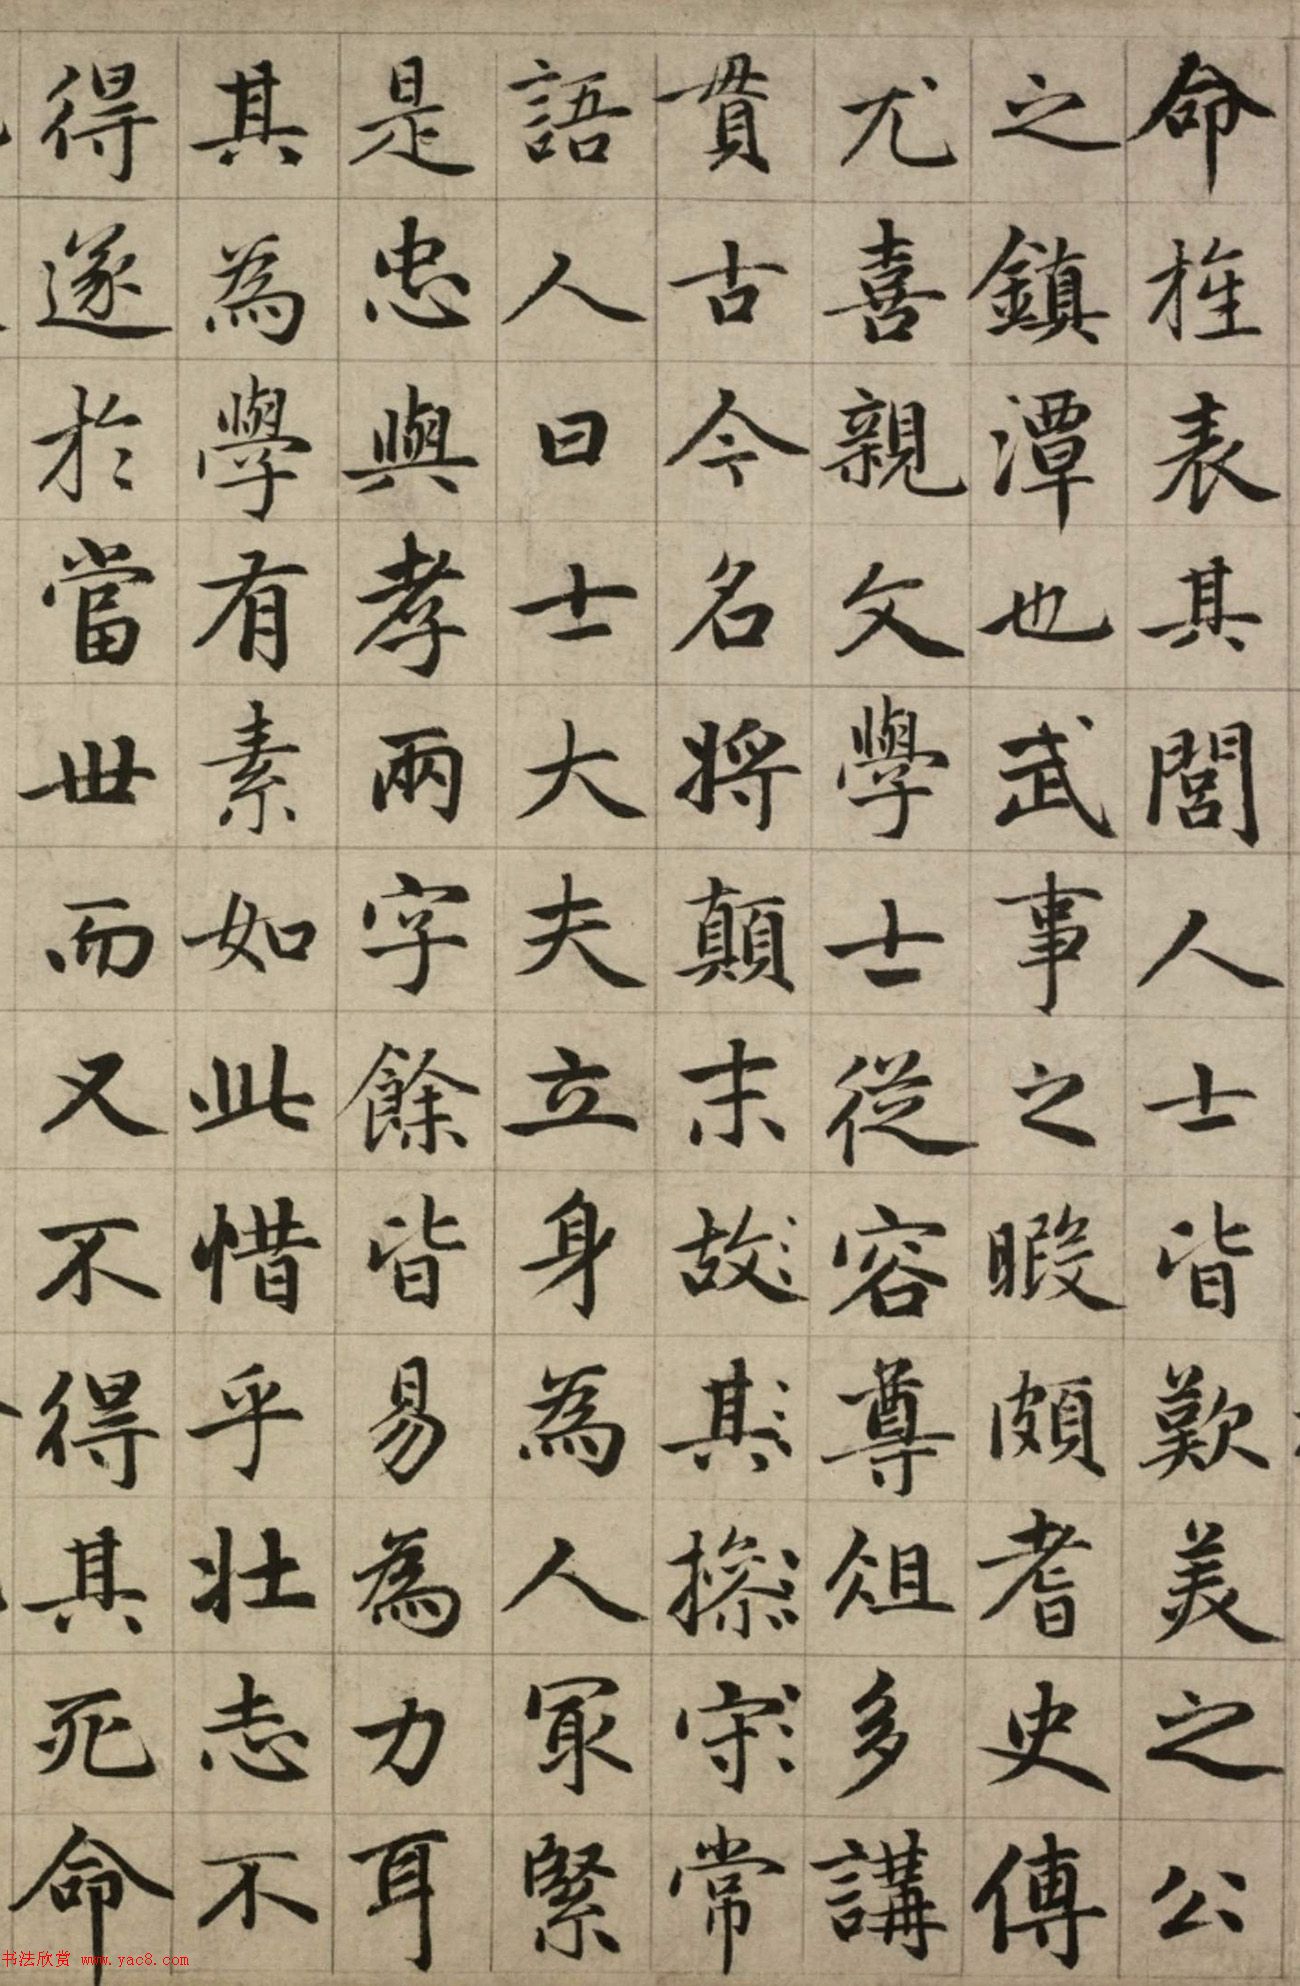 命旌表其閭人士皆歎美之公
之鎮潭也武事之暇頗耆史傳
尤喜親文學士從容尊俎多講
貫古今名將顛末故其操守常
語人曰士大夫立身為人冣緊
是忠與孝兩字餘皆易為力耳
其為學有素如此惜乎壯志不
得遂於當世而又不得其死命
书法欣赏 www.yac8.com